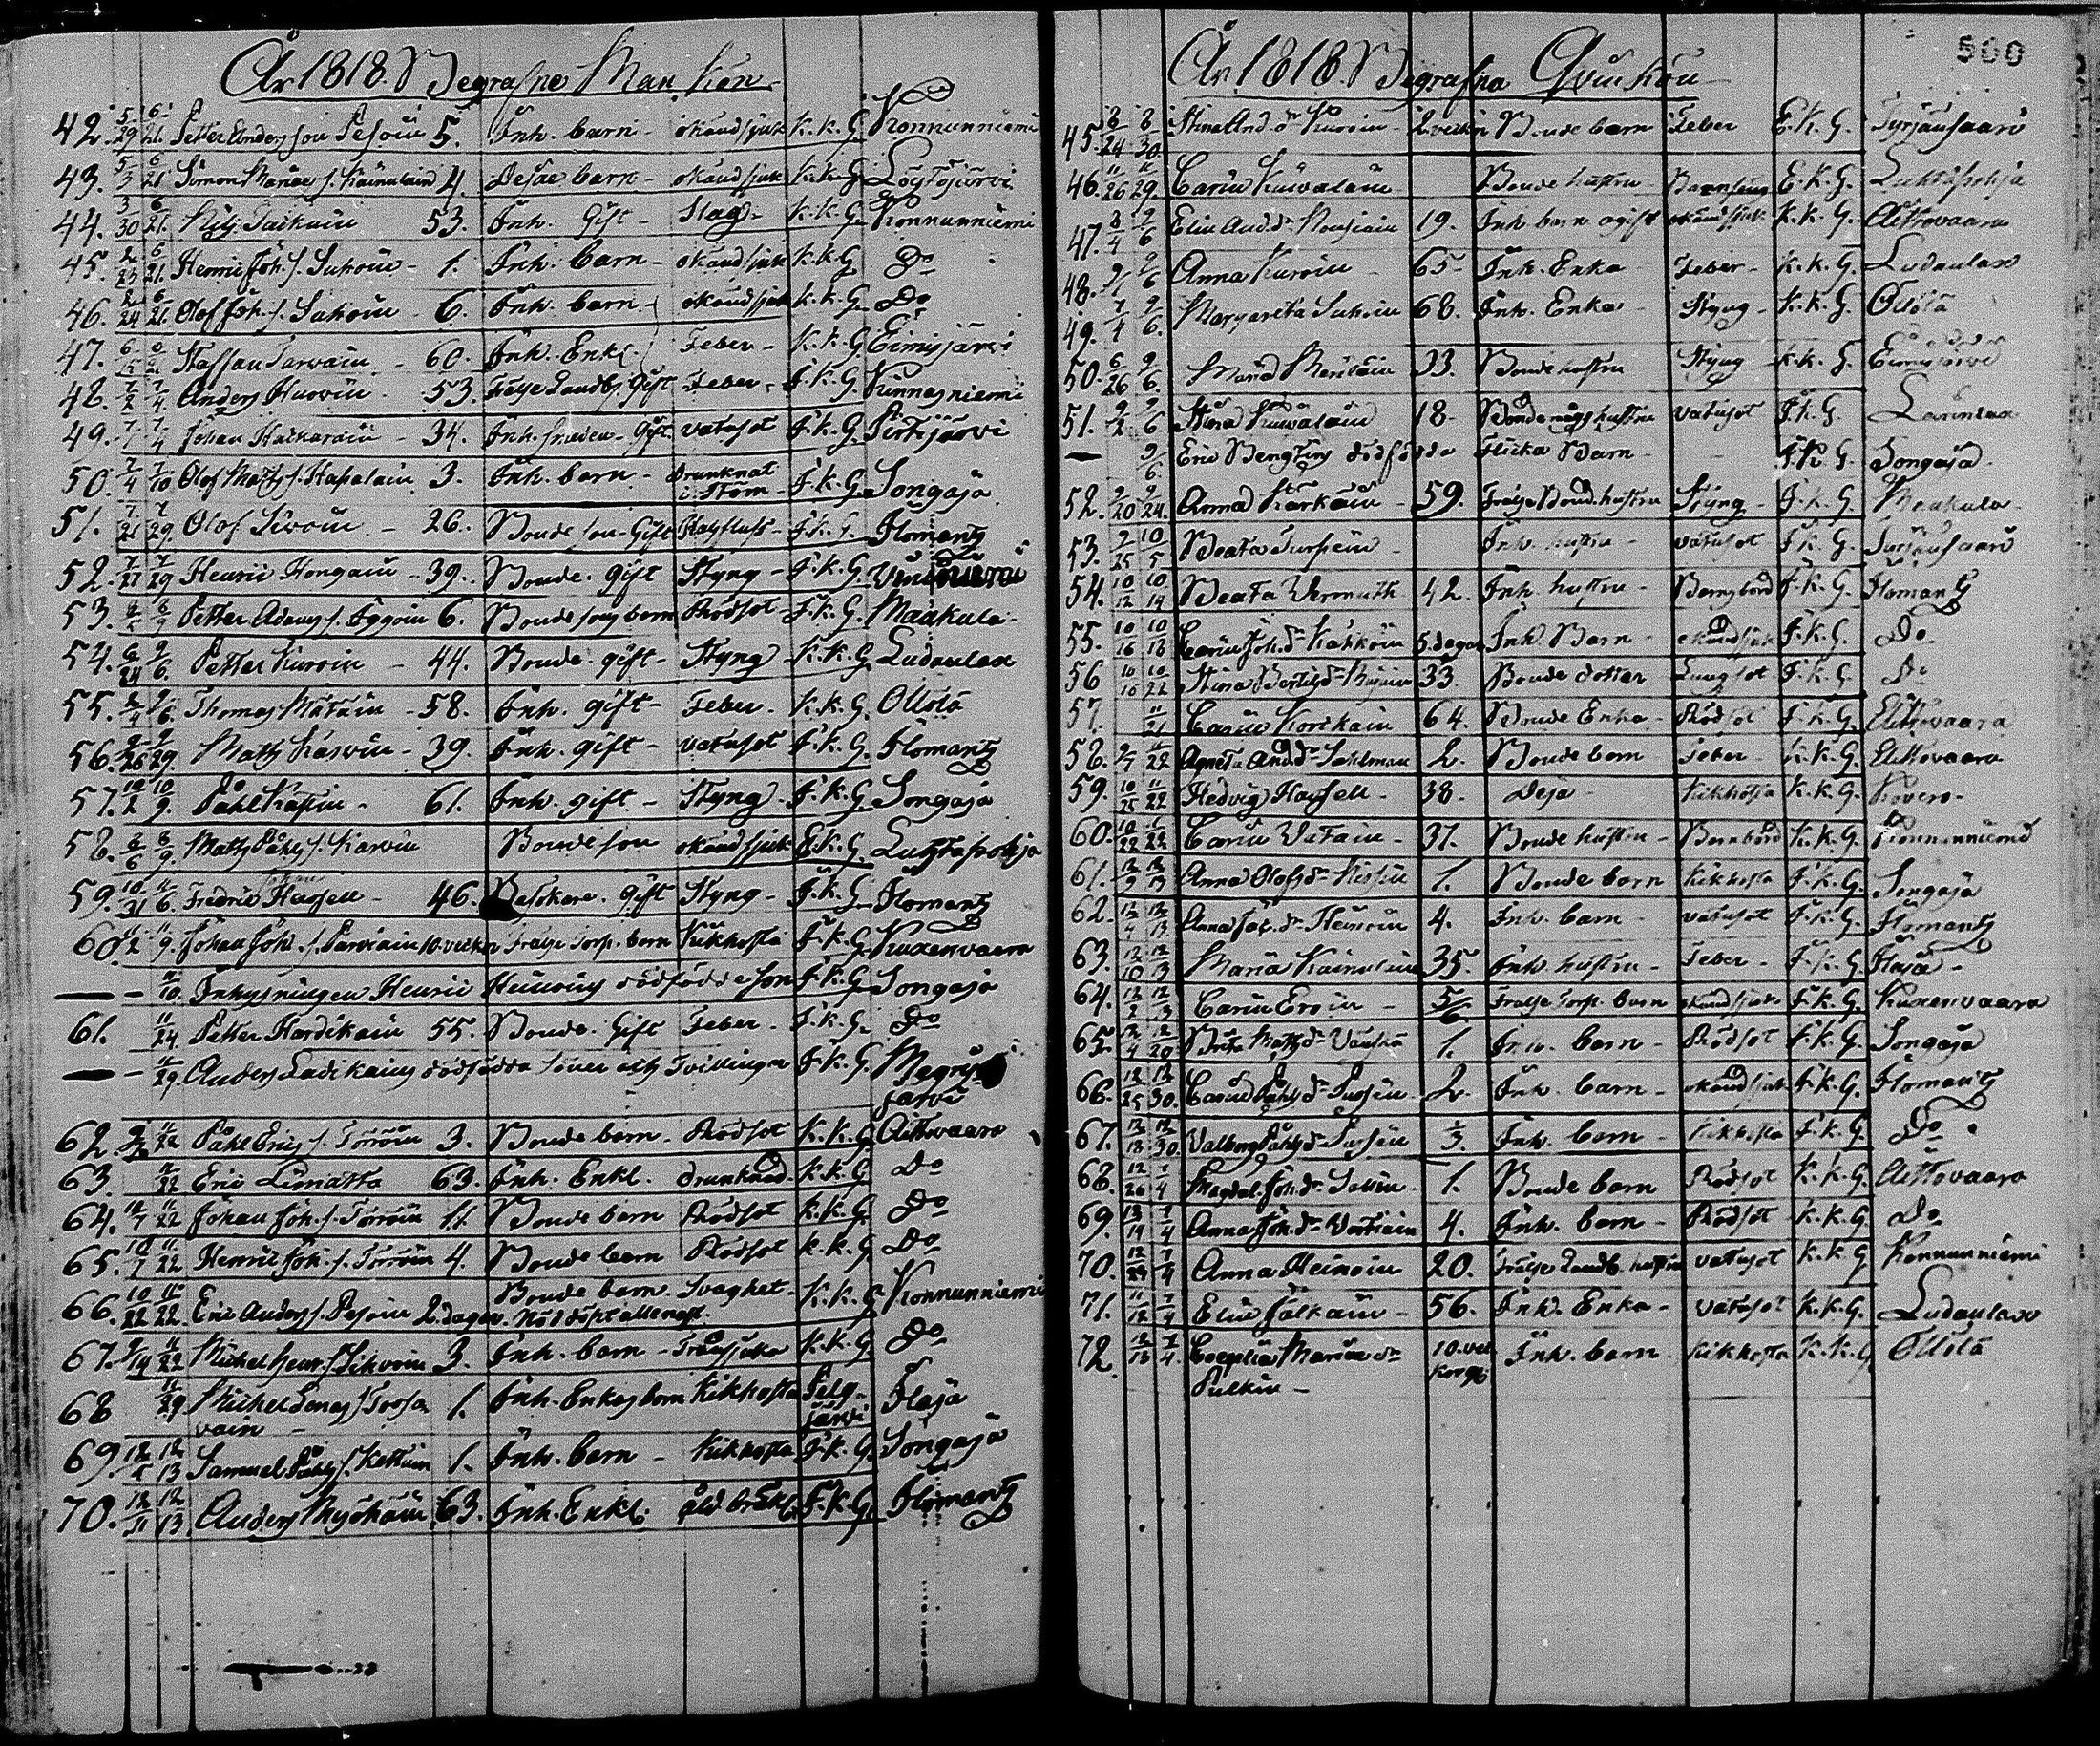 År 1818. Begrafne Man Kön
42. 5/29 6/21. Petter Anders son Pesoin 5. Inh. barn - okänd sjuk K.K.G. Konnunniemi
43. 5/3 6/21 Simon Mariæ s. Kainulain 4. Desse barn - okänd sjuk K.K.G. Löytöjärvi
44. 3/30 6/21. Nils Saikain 53. Inh. Gift - Slag - K.K.G. Konnunniemi
45. 2/23 6/21. Henric Joh. s. Suhoin - 1. Inh. barn - okänd sjuk K.K.G Do
46. 2/24 6/21. Olof Joh. s. Suhoin - 6. Inh. barn - okänd sjuk K.K.G. Do
47. Staffan Tarvain - 60. Inh. Enkl. Feber - K.K.G. Eimisjärvi
48. 7/2 7/4. Anders Hurvin - 53. Frälse Landb. Gift Feber - I.K.G. Kunnasniemi
49. 7/1 7/4 Johan Hackarain - 34. Inh. Gift vatusot I.K.G. Pirttjärvi
50. 7/4 7/10 Olof Matts s. Hapalain 3. Inh. barn - Drunknat i Ström - I.K.G. Songaja
51. 7/21 7/29. Olof Sivoin - 26. Bonde son - Gift I.K.G. Ilomants
52. 7/27 7/29 Henric Hongain - 39. Bonde. gift Styng - I.K.G.
53. 8/9 Petter Adams s. Iggoin 6. Bonde sons barn Rödsot I.K.G. Maakula
54. 6/24 9/6. Petter Kuroin - 44. Bonde. gift - Styng - K.K.G. Ludaulax
55. 8/4 9/6. Thomas Mätäin - 58. Inh. gift - Feber - K.K.G. Ollola
56. 9/26 9/29. Matts Karvin - 39. Inh. gift - vatusot I.K.G. Ilomants
57. 10/2 10/9. Påhl Käpin - 61. Inh. gift - Styng - I.K.G. Songaja
58. 8/6 8/9. Matts Påhls s. Karvin Bonde son okänd sjuk E.K.G. Luhtapohja
59. 10/31 11/6. Fredric Johan Hassell - 46. Besökare. Gift Styng - I.K.G. Ilomants
60. 11/2 11/9. Johan Joh. s. Parviain 10. veckor Frälse Torp. barn Kikhosta I.K.G. Kuxenvaara
— - 11/10. Inhysningen Henric Heinoins dödfödde son I.K.G. Songaja
61. 11/24. Petter Hardikain 55. Bonde. Gift Feber - I.K.G. Do
— - 11/29. Anders Ladikains dödfödda söner ats Tvillingar I.K.G. Megrijärvi
62. 11/22 Påhl Erics s. Törröin 3. Bonde barn - Rödsot K.K.G. Aittovaara
63. 11/22 Eric Limatta 63. Inh. Enkl. drunknad - K.K.G Do
64. 10/7 11/22 Johan Joh. s. Törröin 11. Bonde barn Rödsot K.K.G. Do
65. 10/7 11/22 Henric Joh. s. Törröin 4. Bonde barn Rödsot K.K.G. Do
66. 10/22 11/22. Eric Anders s. Pesoin 2 dagar. Bonde barn Nöddöpt allenast. Svaghet - K.K.G Konnunniemi
67. 9/14 11/22 Michel Henr. s. Sihvoin 3. Inh. barn - K.K.G Do
68 11/29 Michel Jonas s. Tossavain - 1. Inh. Enkas barn Kikhosta Pelgjärvi Ilaja
69. 12/5 12/13 Samuel Påhls s. Kettuin 1. Inh. barn - Kikhosta I.K.G. Songaja
70. 12/11 12/13 Anders Myöhäin 63. Inh. Enkl. åld. bräkl. I.K.G. Ilomants
500
År 1818. Begrafna Qvinkön
45. 8/24 8/30. Stina And. dr Kuroin - 2. veckor Bonde barn Feber E.K.G. Tyrjänsaari
46. 11/26 11/29. Carin Kuivalain Bonde hustru - Barnsäng E.K.G. Luhtapohja
47. 8/4 9/6 Elin And. dr Nousiain 19. Inh. barn ogift okänd sjuk. K.K.G. Aittovaara
48. 9/1 9/6 Anna Kuroin - 65 - Inh. Enka Feber - K.K.G. Ludaulax
49. 7/4 9/6. Margareta Suhoin 68. Inh. Enka - Styng - K.K.G. Ollola
50. 6/26 9/6. Maria Meriläin 33. Bonde hustru Styng K.K.G. Eimisjärvi
51. 9/2 9/6 Stina Kuivalain 18 - Bonde mågs hustru vatusot I.K.G. Larinlax
— 9/6. Eric Bengtins dödfödda Flicka Barn - - I.K.G. Songaja
52. 9/20 9/24. Anna Karkain - 59. Frälse Bond. hustru Styng - I.K.G. Maakula
53. 9/25 10/5 Beata Turpein - Inh. hustru - vatusot I.K.G. Tyrjänsaari
54. 10/12 10/14 Beata Vermuth 42. Inh. hustru - Barnsbörd I.K.G. Ilomants
55. 10/16 10/18 Carin Joh. d Kakkoin 5. dagar Inh. Barn - okänd sjuk I.K.G. Do
56 10/18 10/22 Stina Bertils dr 33. Bonde dotter Lungsot I.K.G. Do
57. 11/21 Carin Korikain 64. Bonde Enka - Rödsot I.K.G. Aittovaara
58. 9/7 11/22 Agneta And. dr Sahlman 2. Bonde barn Feber - K.K.G. Aittovaara
59. 10/25 11/22 Hedvig Hassell - 38 - Deja - Kikhosta K.K.G. Kovero -
60. 10/22 11/22 Carin Vatain - 37. Bonde hustru - Barnbörd K.K.G. Konnunniemi
61. 12/9 12/13 Anna Olofs dr Kissin 1. Bonde barn Kikhosta I.K.G. Songaja
62. 12/4 12/13 Anna Jac. dr Heinoin 4. Inh. barn - vatusot I.K.G. Ilomants
63. 12/10 12/13 Maria Kainulain 35. Inh. hustru - Feber - I.K.G. Ilaja -
64. 12/2 12/13 Carin Eroin - Frälse Torp. barn okänd sjuk I.K.G. Kuxenvaara
65. 12/4 12/20 Brita Matts dr Vauska 1. Inh. barn - Rödsot I.K.G. Songaja
66. 12/25 12/30. Carin Påhls dr Pussin 2. Inh. barn - okänd sjuk I.K.G. Ilomants
67. 12/18 12/30. Valborg Påhls dr Pussin 1/3. Inh. barn - Kikhosta I.K.G. Do
68. 12/26 1/4 Magdal. Joh. dr 1. Bonde barn Rödsot K.K.G. Aittovaara
69. 12/14 1/4 Anna Joh. dr Vartiain 4. Inh. barn - Rödsot - K.K.G. Do
70. 12/29 1/4 Anna Heinoin 20. Frälse Landb. hustru vatusot K.K.G Konnunniemi
71. 11/12 1/4 Elin Jalkain - 56. Inh. Enka - vatusot K.K.G. Ludaulax
72. 12/13 1/4. Cecilia Mariæ dr Pulkin - 10. veckor Inh. barn - Kikhosta K.K.G Ollola